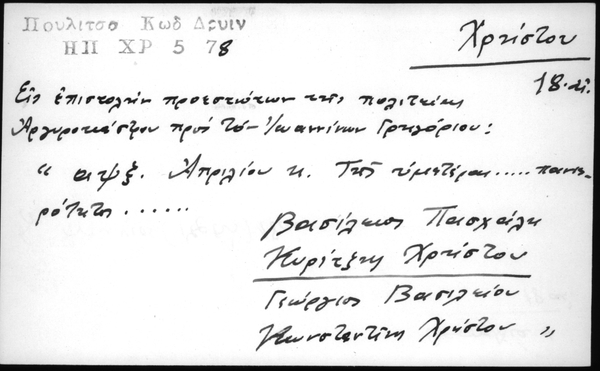 Πουλιτσα Κωδ Δρυιν
ΗΠ ΧΡ 5 78
Χρήστου
18. αἰ.
Εἰς ἐπιστολὴν προεστώτων τῆς πολιτείας
Ἀργυροκάστρου πρὸς τὸν Ἰωαννίνων Γρηγόριον:
“ αψξ. Ἀπριλίου κ. Τῆς ὑμετέρας ..... πανιε-
ρότητος ......
Βασίλειος Πασχάλη
Κυρίτζης Χρήστου
Γεώργιος Βασιλείου
Κωνσταντίνος Χρήστου „